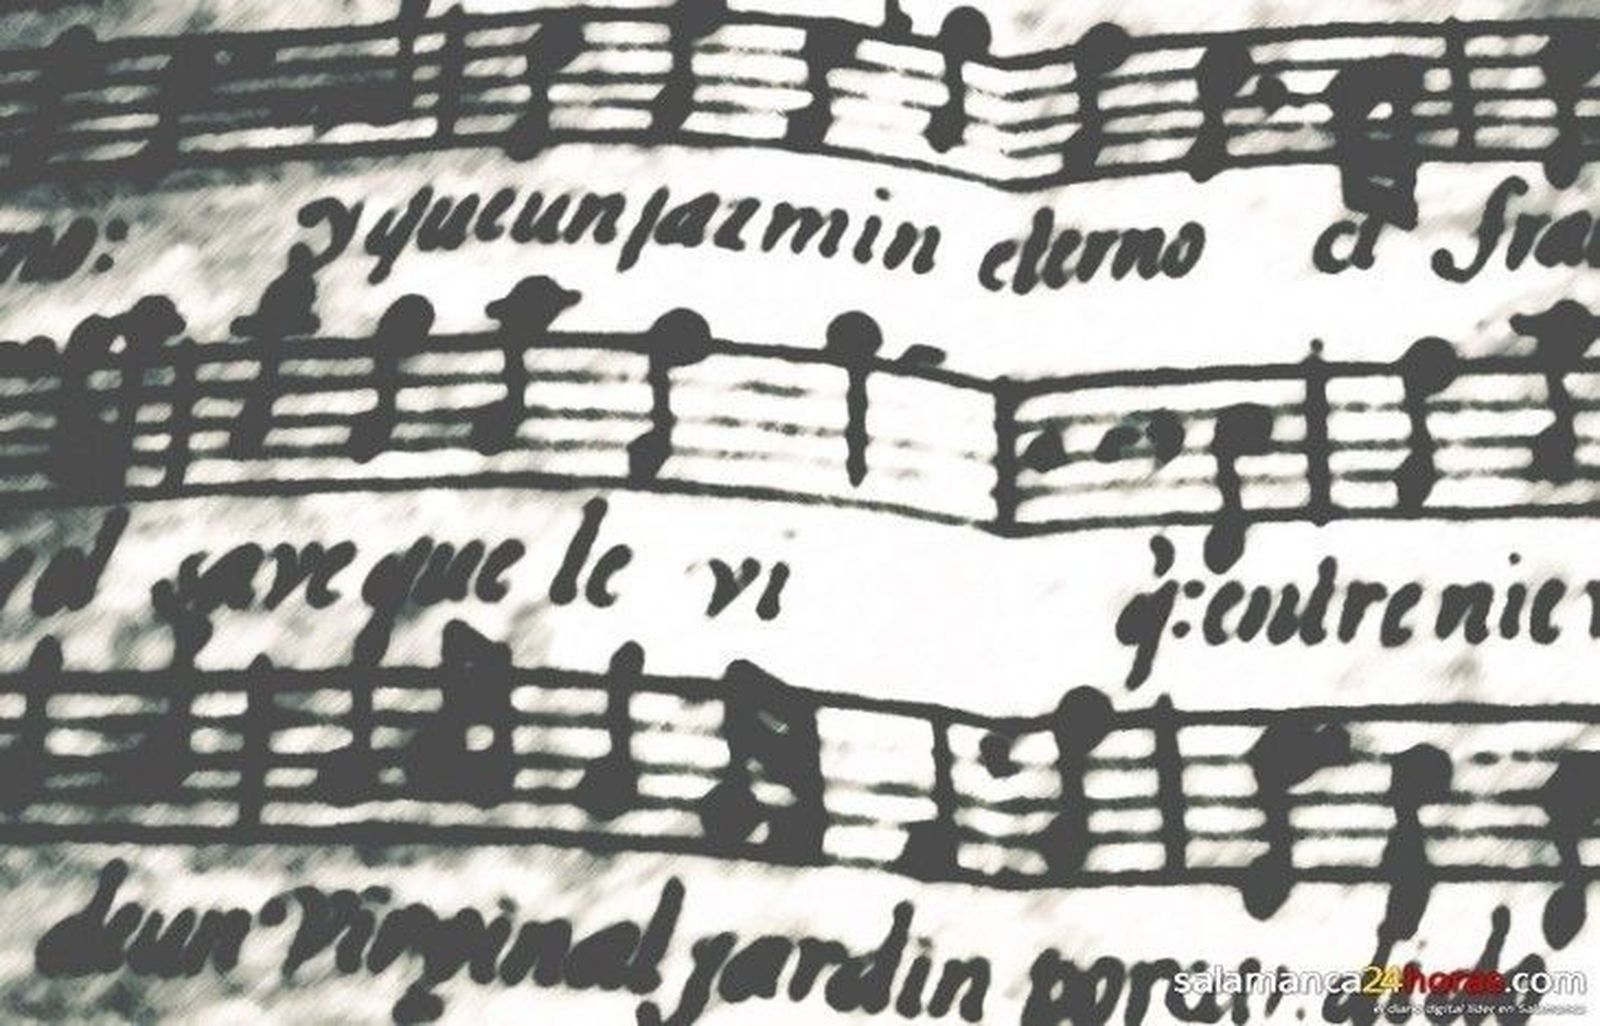 no: y que un jazmin eterno el fra
ad save que le vi q: entre niev
de un virginal jardin por su
salamanca24horas.com
el diario digital líder en Salamanca